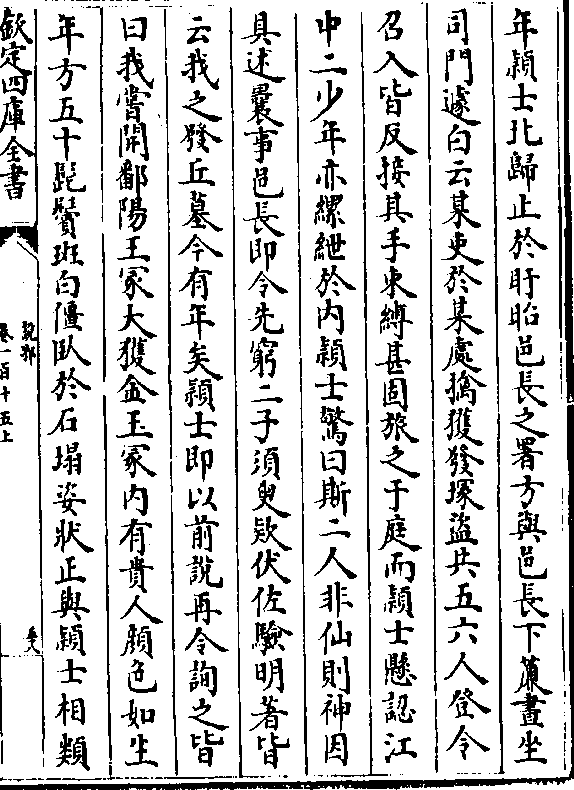 年穎士北歸止於盱眙邑長之署方與邑長下簾晝坐
司門遽白云某吏於某處擒獲發塚盜共五六人登令
召入皆反接其手束縛甚固旅之于庭而穎士懸認江
中二少年亦縲紲於内穎士驚曰斯二人非仙則神因
具述曩事邑長即令先窮二子須臾欵伏佐驗明著皆
云我之發丘墓今有年矣穎士即以前說再令詢之皆
曰我嘗開鄱陽王冢大獲金玉冢内有貴人顔色如生
年方五十髭鬢班白僵臥於石塌姿狀正與穎士相類
欽定四庫全書
說郛
卷一百十五上